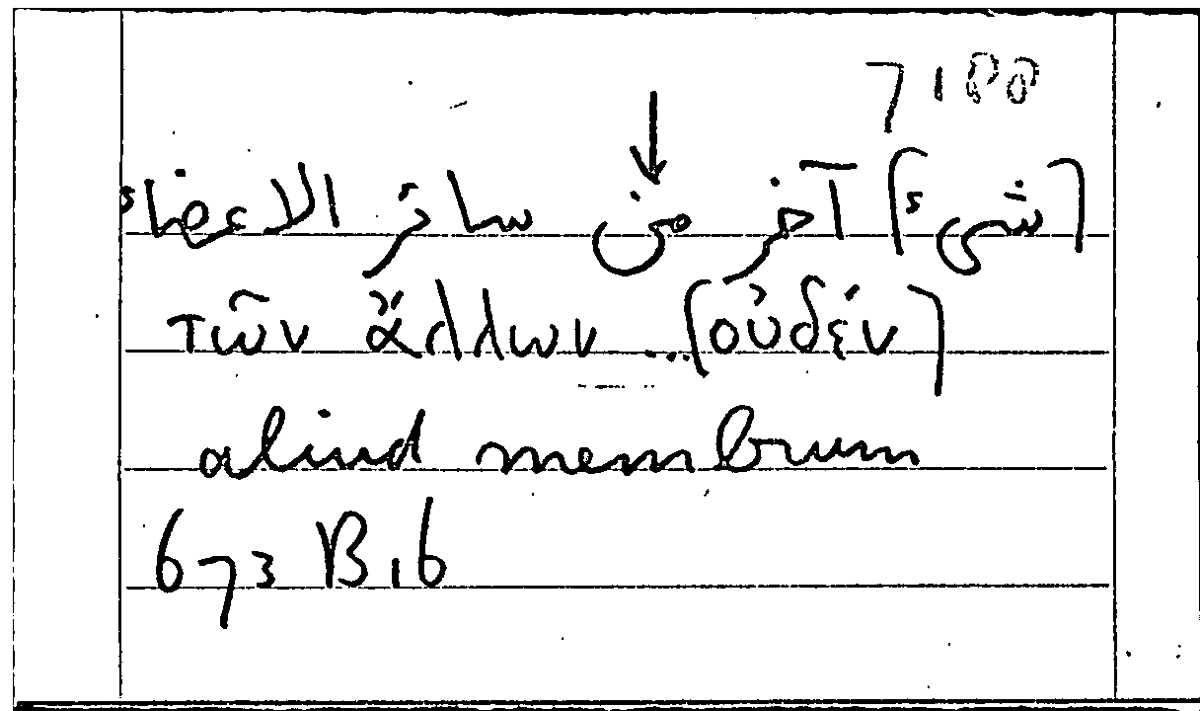 [شىء] آخر من سائر الاعضاء
τῶν ἄλλων ... [οὐδέν]
aliud membrum
673 B 16